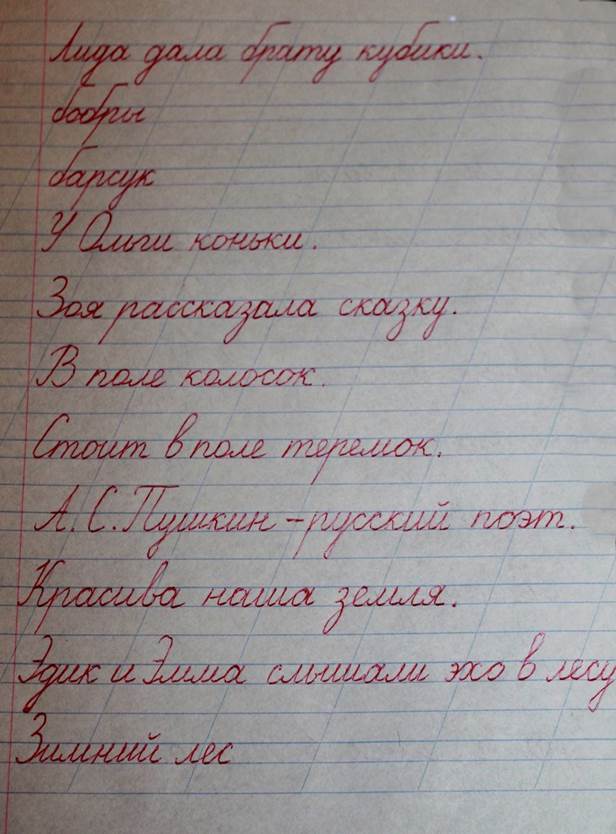 Лида дала брату кубики.
бобры
барсук
У Ольги коньки.
Зоя рассказала сказку.
В поле колосок.
Стоит в поле теремок.
А. С. Пушкин – русский поэт.
Красива наша земля.
Эдик и Эмма слышали эхо в лесу
Зимний лес